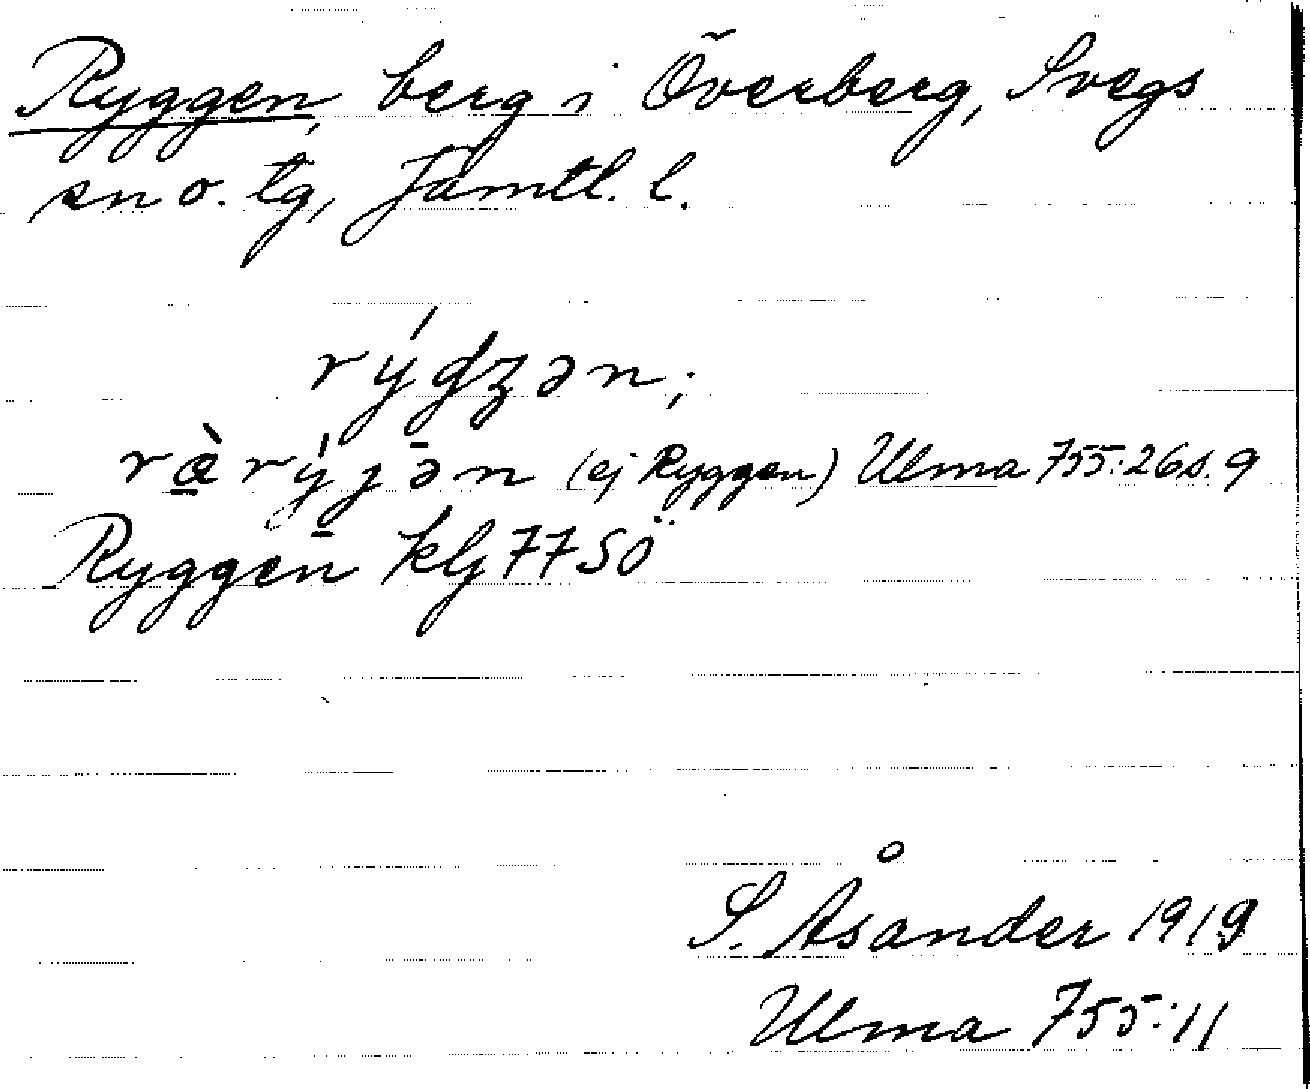 Ryggen, berg i Överberg, Svegs
sn o. tg, Jämtl. l.
rýgʒən;
ræ̀rýjən (ej Ryggen) Ulma 755:26 s. 9
Ryggen klj 77 SÖ
S. Åsander 1919
Ulma 755:11